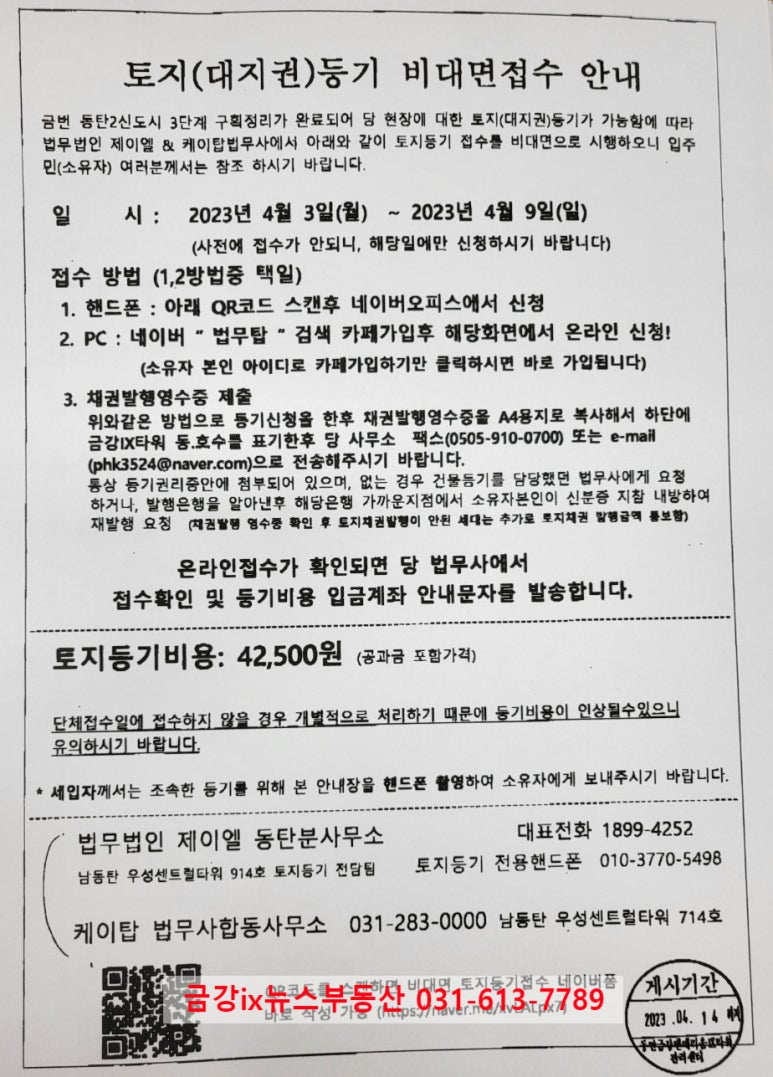 토지(대지권)등기 비대면접수 안내
금번 동탄2신도시 3단계 구획정리가 완료되어 당 현장에 대한 토지(대지권)등기가 가능함에 따라
법무법인 제이엘 & 케이탑법무사에서 아래와 같이 토지등기 접수를 비대면으로 시행하오니 입주
민(소유자) 여러분께서는 참조 하시기 바랍니다.
일 시 : 2023년 4월 3일(월) ~ 2023년 4월 9일(일)
(사전에 접수가 안되니, 해당일에만 신청하시기 바랍니다)
접수 방법 (1,2방법중 택일)
1. 핸드폰 : 아래 QR코드 스캔후 네이버오피스에서 신청
2. PC : 네이버 " 법무탑 " 검색 카페가입후 해당화면에서 온라인 신청!
(소유자 본인 아이디로 카페가입하기만 클릭하시면 바로 가입됩니다)
3. 채권발행영수증 제출
위와같은 방법으로 등기신청을 한후 채권발행영수증을 A4용지로 복사해서 하단에
금강IX타워 동.호수를 표기한후 당 사무소 팩스(0505-910-0700) 또는 e-mail
(phk3524@naver.com)으로 전송해주시기 바랍니다.
통상 등기권리증안에 첨부되어 있으며, 없는 경우 건물등기를 담당했던 법무사에게 요청
하거나, 발행은행을 알아낸후 해당은행 가까운지점에서 소유자본인이 신분증 지참 내방하여
재발행 요청 (채권발행 영수증 확인 후 토지채권발행이 안된 세대는 추가로 토지채권 발행금액 통보함)
온라인접수가 확인되면 당 법무사에서
접수확인 및 등기비용 입금계좌 안내문자를 발송합니다.
토지등기비용: 42,500원 (공과금 포함가격)
단체접수일에 접수하지 않을 경우 개별적으로 처리하기 때문에 등기비용이 인상될수있으니
유의하시기 바랍니다.
* 세입자께서는 조속한 등기를 위해 본 안내장을 핸드폰 촬영하여 소유자에게 보내주시기 바랍니다.
법무법인 제이엘 동탄분사무소 대표전화 1899-4252
남동탄 우성센트럴타워 914호 토지등기 전담팀 토지등기 전용핸드폰 010-3770-5498
케이탑 법무사합동사무소 031-283-0000 남동탄 우성센트럴타워 714호
QR코드를 스캔하면 비대면 토지등기접수 네이버폼
금강ix뉴스부동산 031-613-7789
바로 작성 가능
게시기간
2023 .04. 14 까지
관리센터